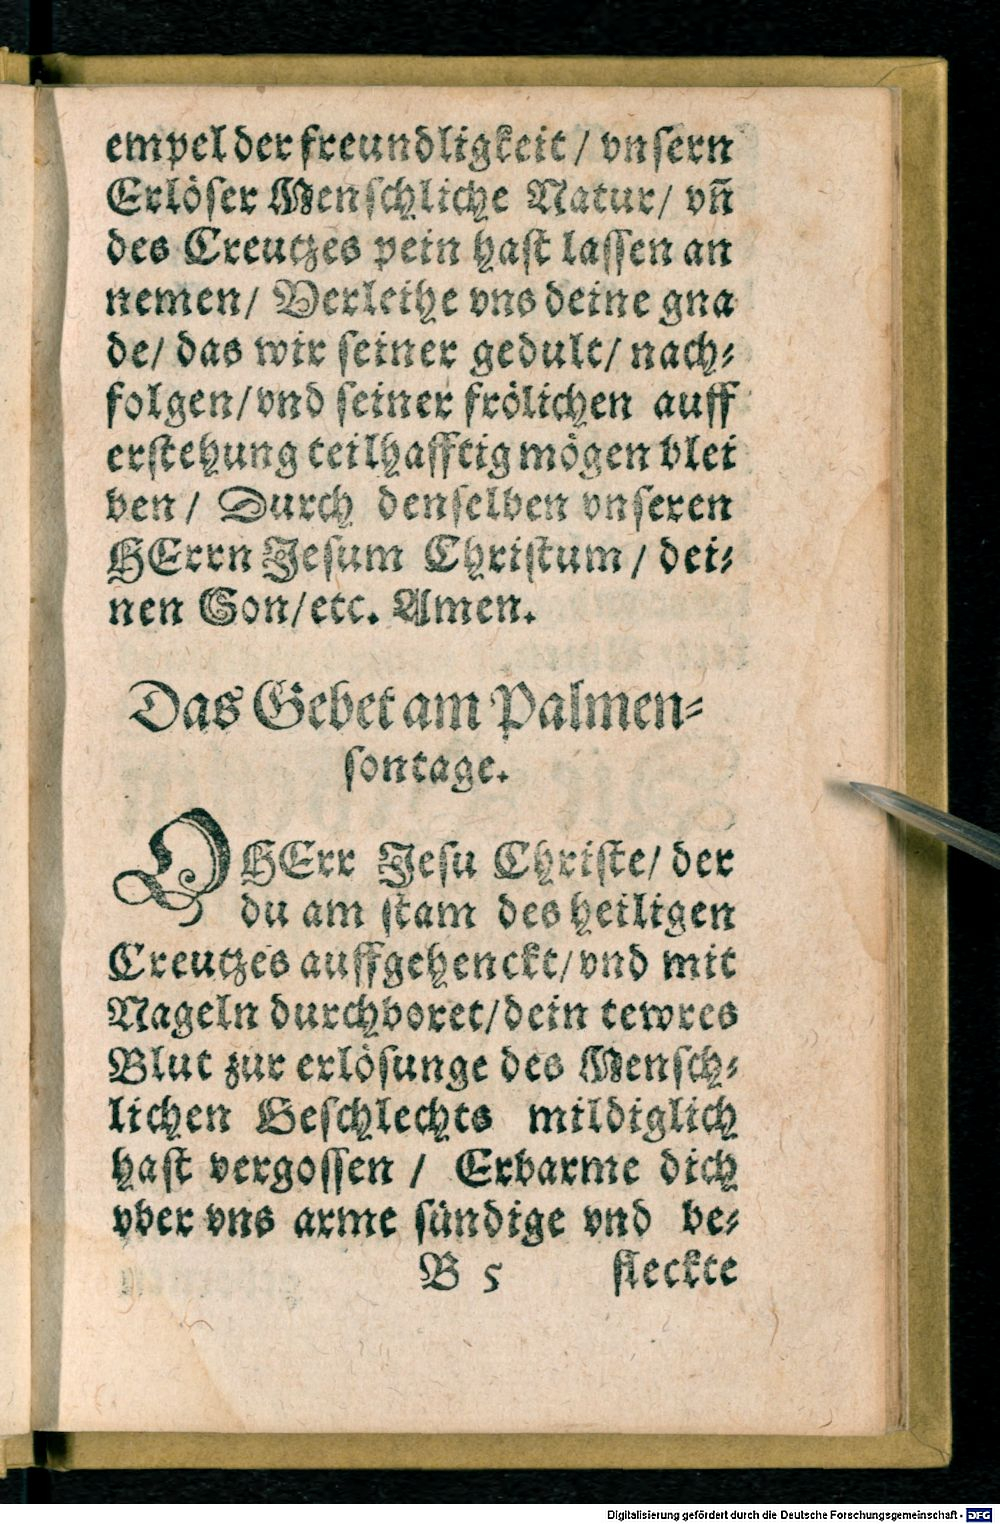 empel der freundligkeit / vnsern
Erlöser Menschliche Natur / vñ
des Creutzes pein hast lassen an
nemen / Verleihe vns deine gna
de / das wir seiner gedult / nach-
folgen / vnd seiner frölichen auff
erstehung teilhafftig mögen blei
ben / Durch denselben vnseren
HErrn Jesum Christum / dei-
nen Son / etc. Amen.
Das Gebet am Palmen-
sontage.
O HErr Jesu Christe / der
du am stam des heiligen
Creutzes auffgehenckt / vnd mit
Nageln durchboret / dein tewres
Blut zur erlösunge des Mensch-
lichen Geschlechts mildiglich
hast vergossen / Erbarme dich
vber vns arme sündige vnd be-
B 5 fleckte
Digitalisierung gefördert durch die Deutsche Forschungsgemeinschaft - DFG